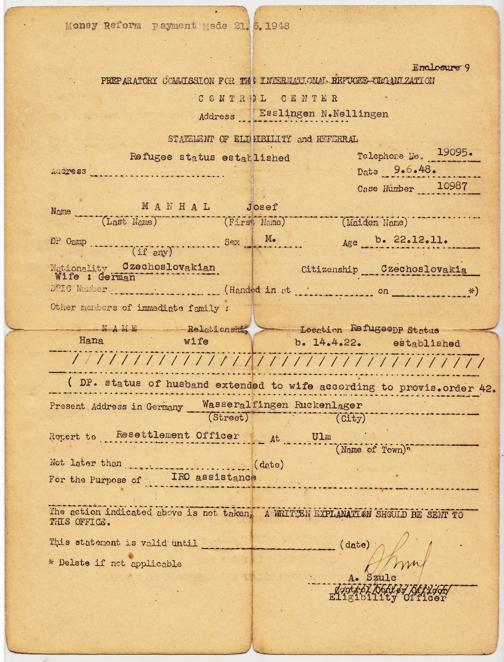 Money Reform payment Made 21.6.1948
Enclosure 9
PREPARATORY COMMISSION FOR THE INTERNATIONAL REFUGEE ORGANIZATION
CONTROL CENTER
Address Esslingen N.Nellingen
STATEMENT OF ELIGIBILITY and REFERRAL
Refugee status established
Telephone No. 19095.
Address
Date 9.6.48.
Case Number 10987
Name MANHAL Josef
(Last Name) (First Name) (Maiden Name)
DP Camp Sex M. Age b. 22.12.11.
(if any)
Nationality Czechoslovakian Citizenship Czechoslovakia
Wife : German
DPIC Number (Handed in at on *)
Other members of immediate family :
NAME Relationship Location Refugee DP Status
Hana wife b. 14.4.22. established
////////////////////////////////////
( DP. status of husband extended to wife according to provis.order 42.
Present Address in Germany Wasseralfingen Ruckenlager
(Street) (City)
Report to Resettlement Officer At Ulm
(Name of Town)"
Not later than (date)
For the Purpose of IRO assistance
The action indicated above is not taken, A WRITTEN EXPLANATION SHOULD BE SENT TO
THIS OFFICE.
This statement is valid until (date)
* Delete if not applicable
A. Szulc
Control Center Officer
Eligibility Officer